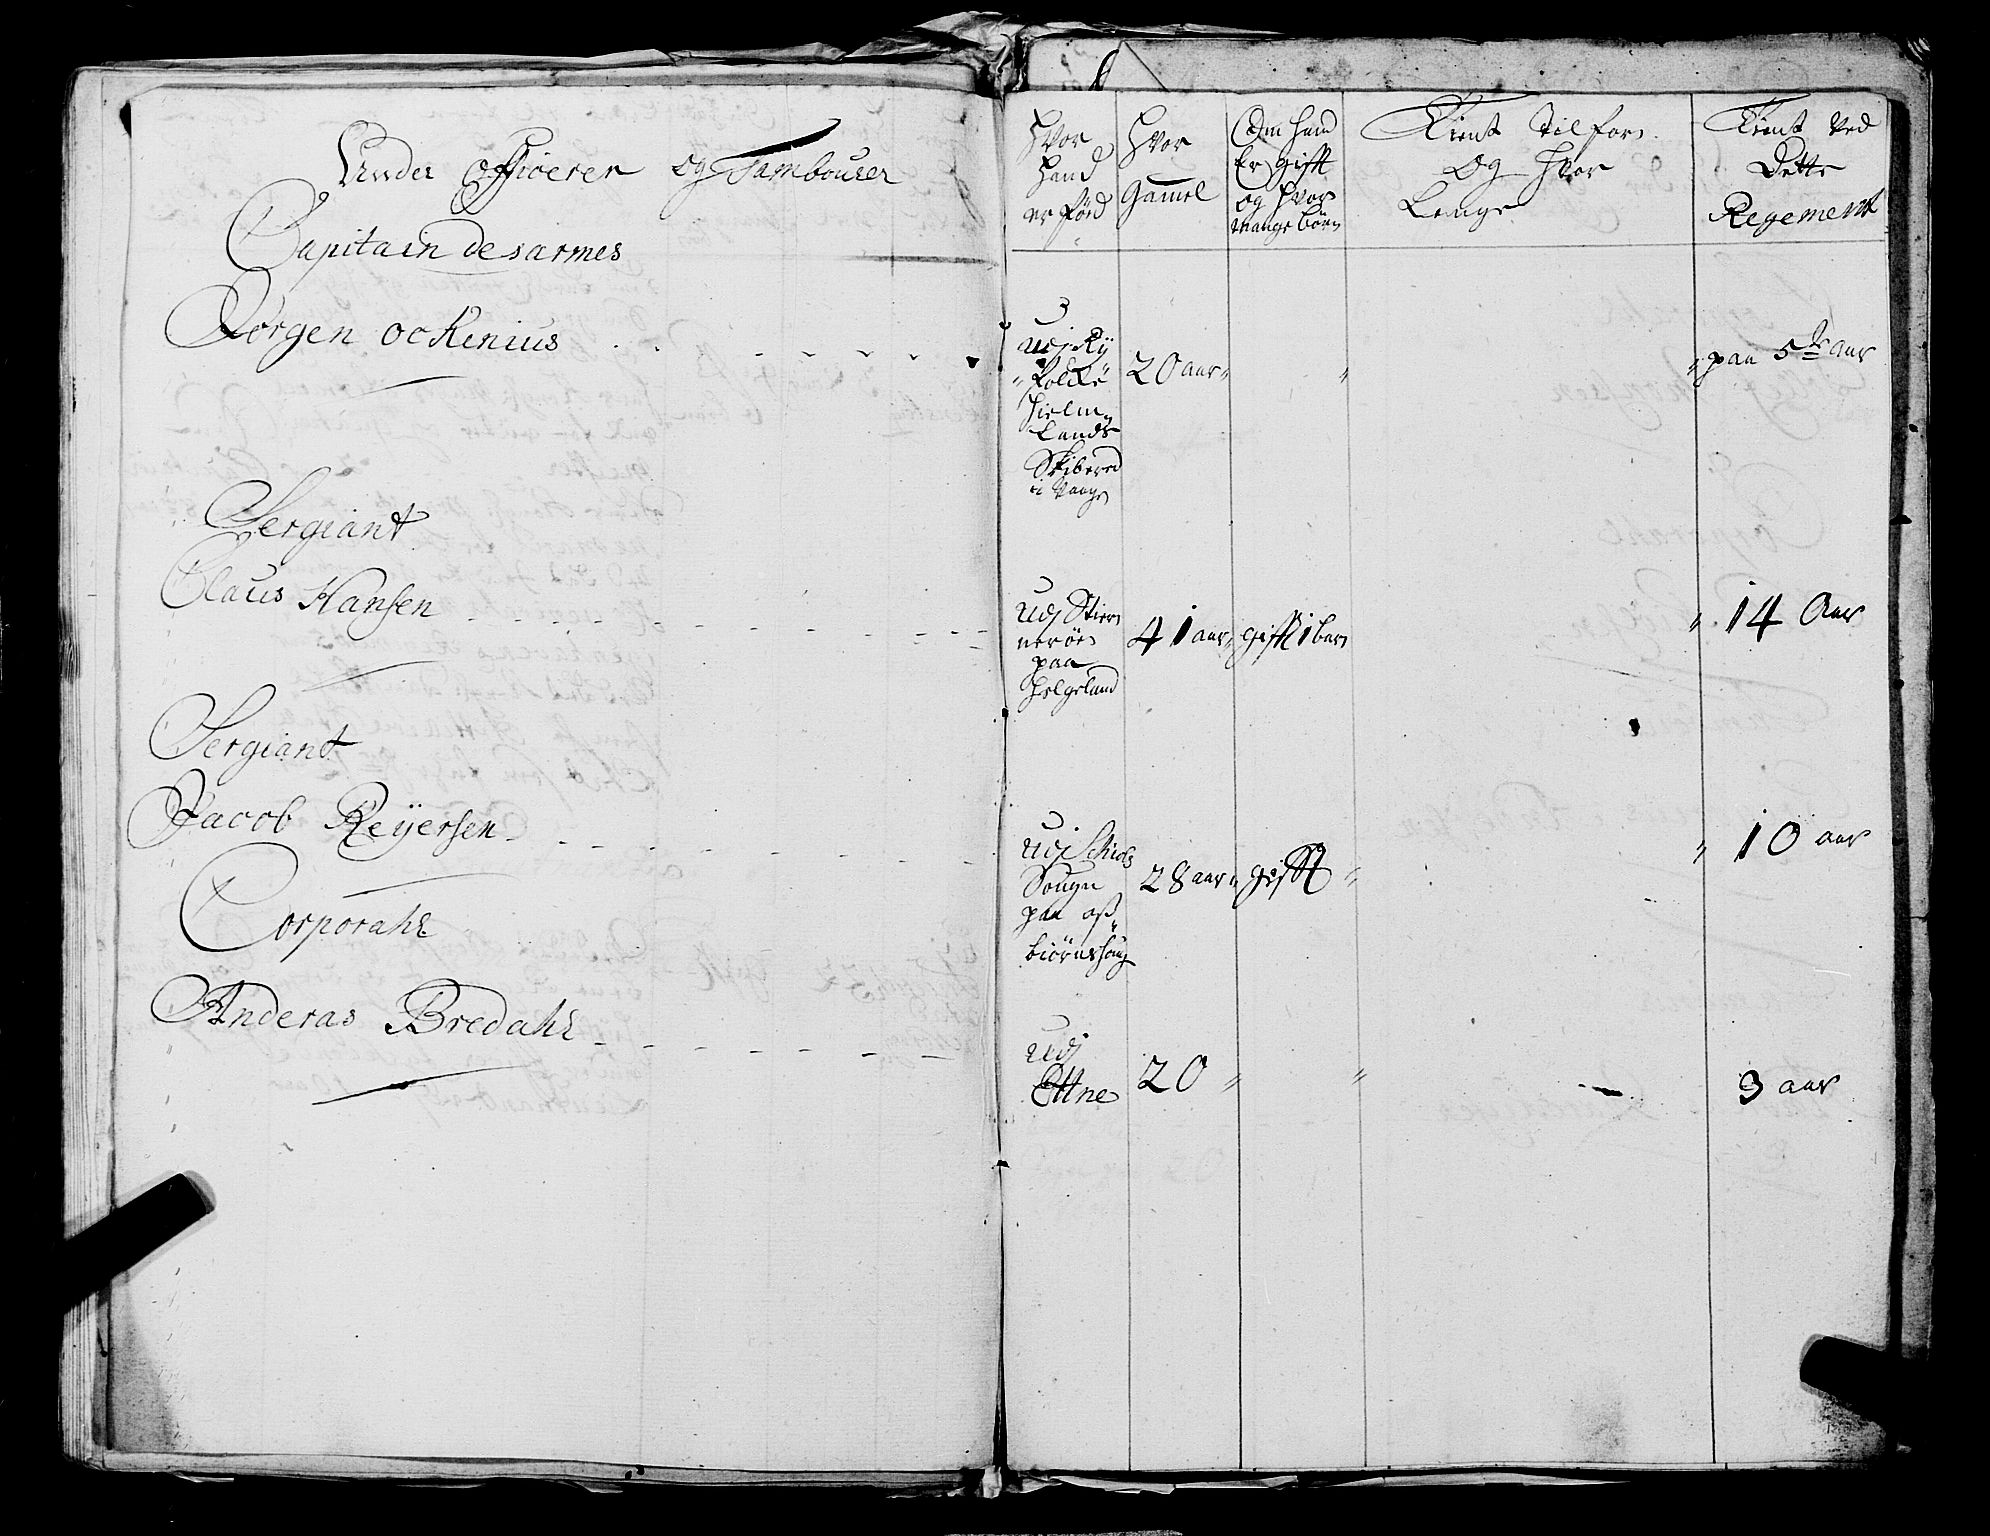 Under Officerer og Tambourer
Capitain de sarmes
Jörgen ockenius
Sergiant
Claus Hansen
Sergiant
Jacob Reijersen
Corporahl
Anderas Bredahl
Hvor
Hand
er föed
Hvor
Gamel
Om hand
Er gifft
og hvor
mange börn
Tient tilforn
Og Hvor
Lenge
Tient ved
Dette
Regement
udj Ry
Folcke
Hielm
Lands
Skibered
i Vaage
20 aar
paa 5te aar
Udj Stier
neröe
paa
Helgeland
41 aar
gifft 1 barn
14 Aar
Udj Schiols
Sougn
paa
28 aar
gifft
10 aar
Udj
Ettne
20
3 aar